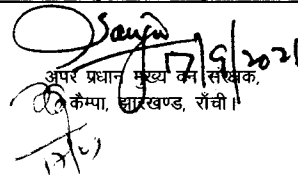 Sanjiv
17/9/2021
अपर प्रधान मुख्य वन संरक्षक,
कैम्पा, झारखण्ड, राँची।
17/9